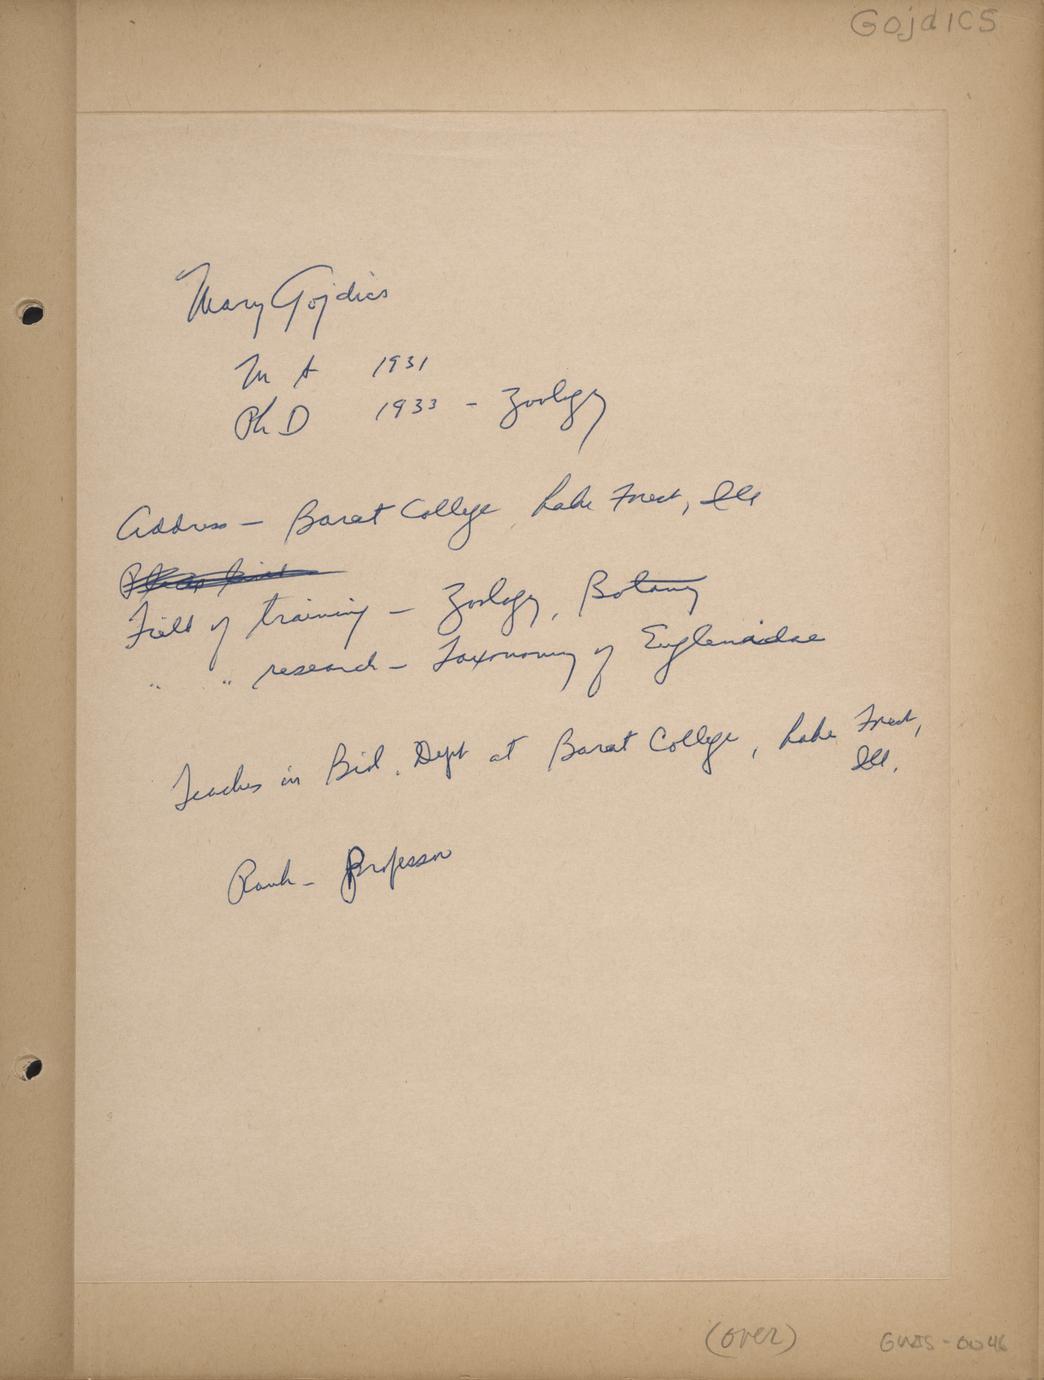 GojdICS
Mary Gojdics
M A 1931
Ph D 1933 - Zoology
Address - Barat College, Lake Forest, Ill
Field of training - Zoology, Botany
" " research - Taxonomy of Euglenidae
Teaches in Biol. Dept at Barat College, Lake Forest,
Ill.
Rank - Professor
(over)
GWIS-0046